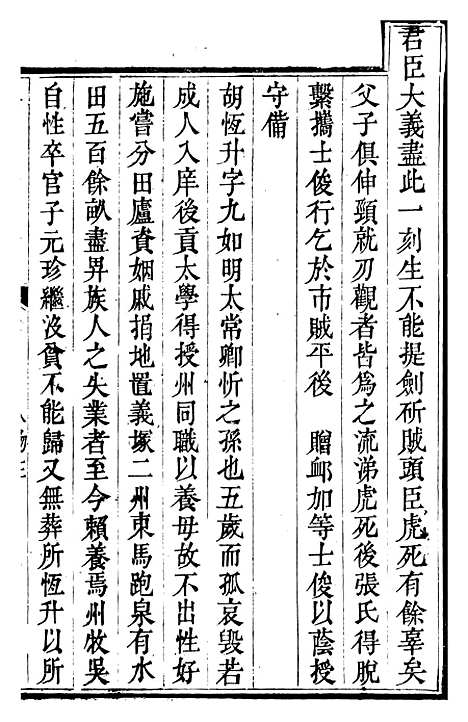 君臣大義盡此一刻生不能提劍斫賊頭臣虎死有餘辜矣
父子俱伸頸就刃觀者皆爲之流涕虎死後張氏得脫
繫攜士俊行乞於市賊平後　贈卹加等士俊以蔭授
守備
胡恆升字九如明太常卿忻之孫也五歲而孤哀毀若
成人入庠後貢太學得授州同職以養母故不出性好
施嘗分田廬資姻戚捐地置義塚二州東馬跑泉有水
田五百餘畝盡畀族人之失業者至今賴養焉州牧吳
自性卒官子元珍繼沒貧不能歸又無葬所恆升以所